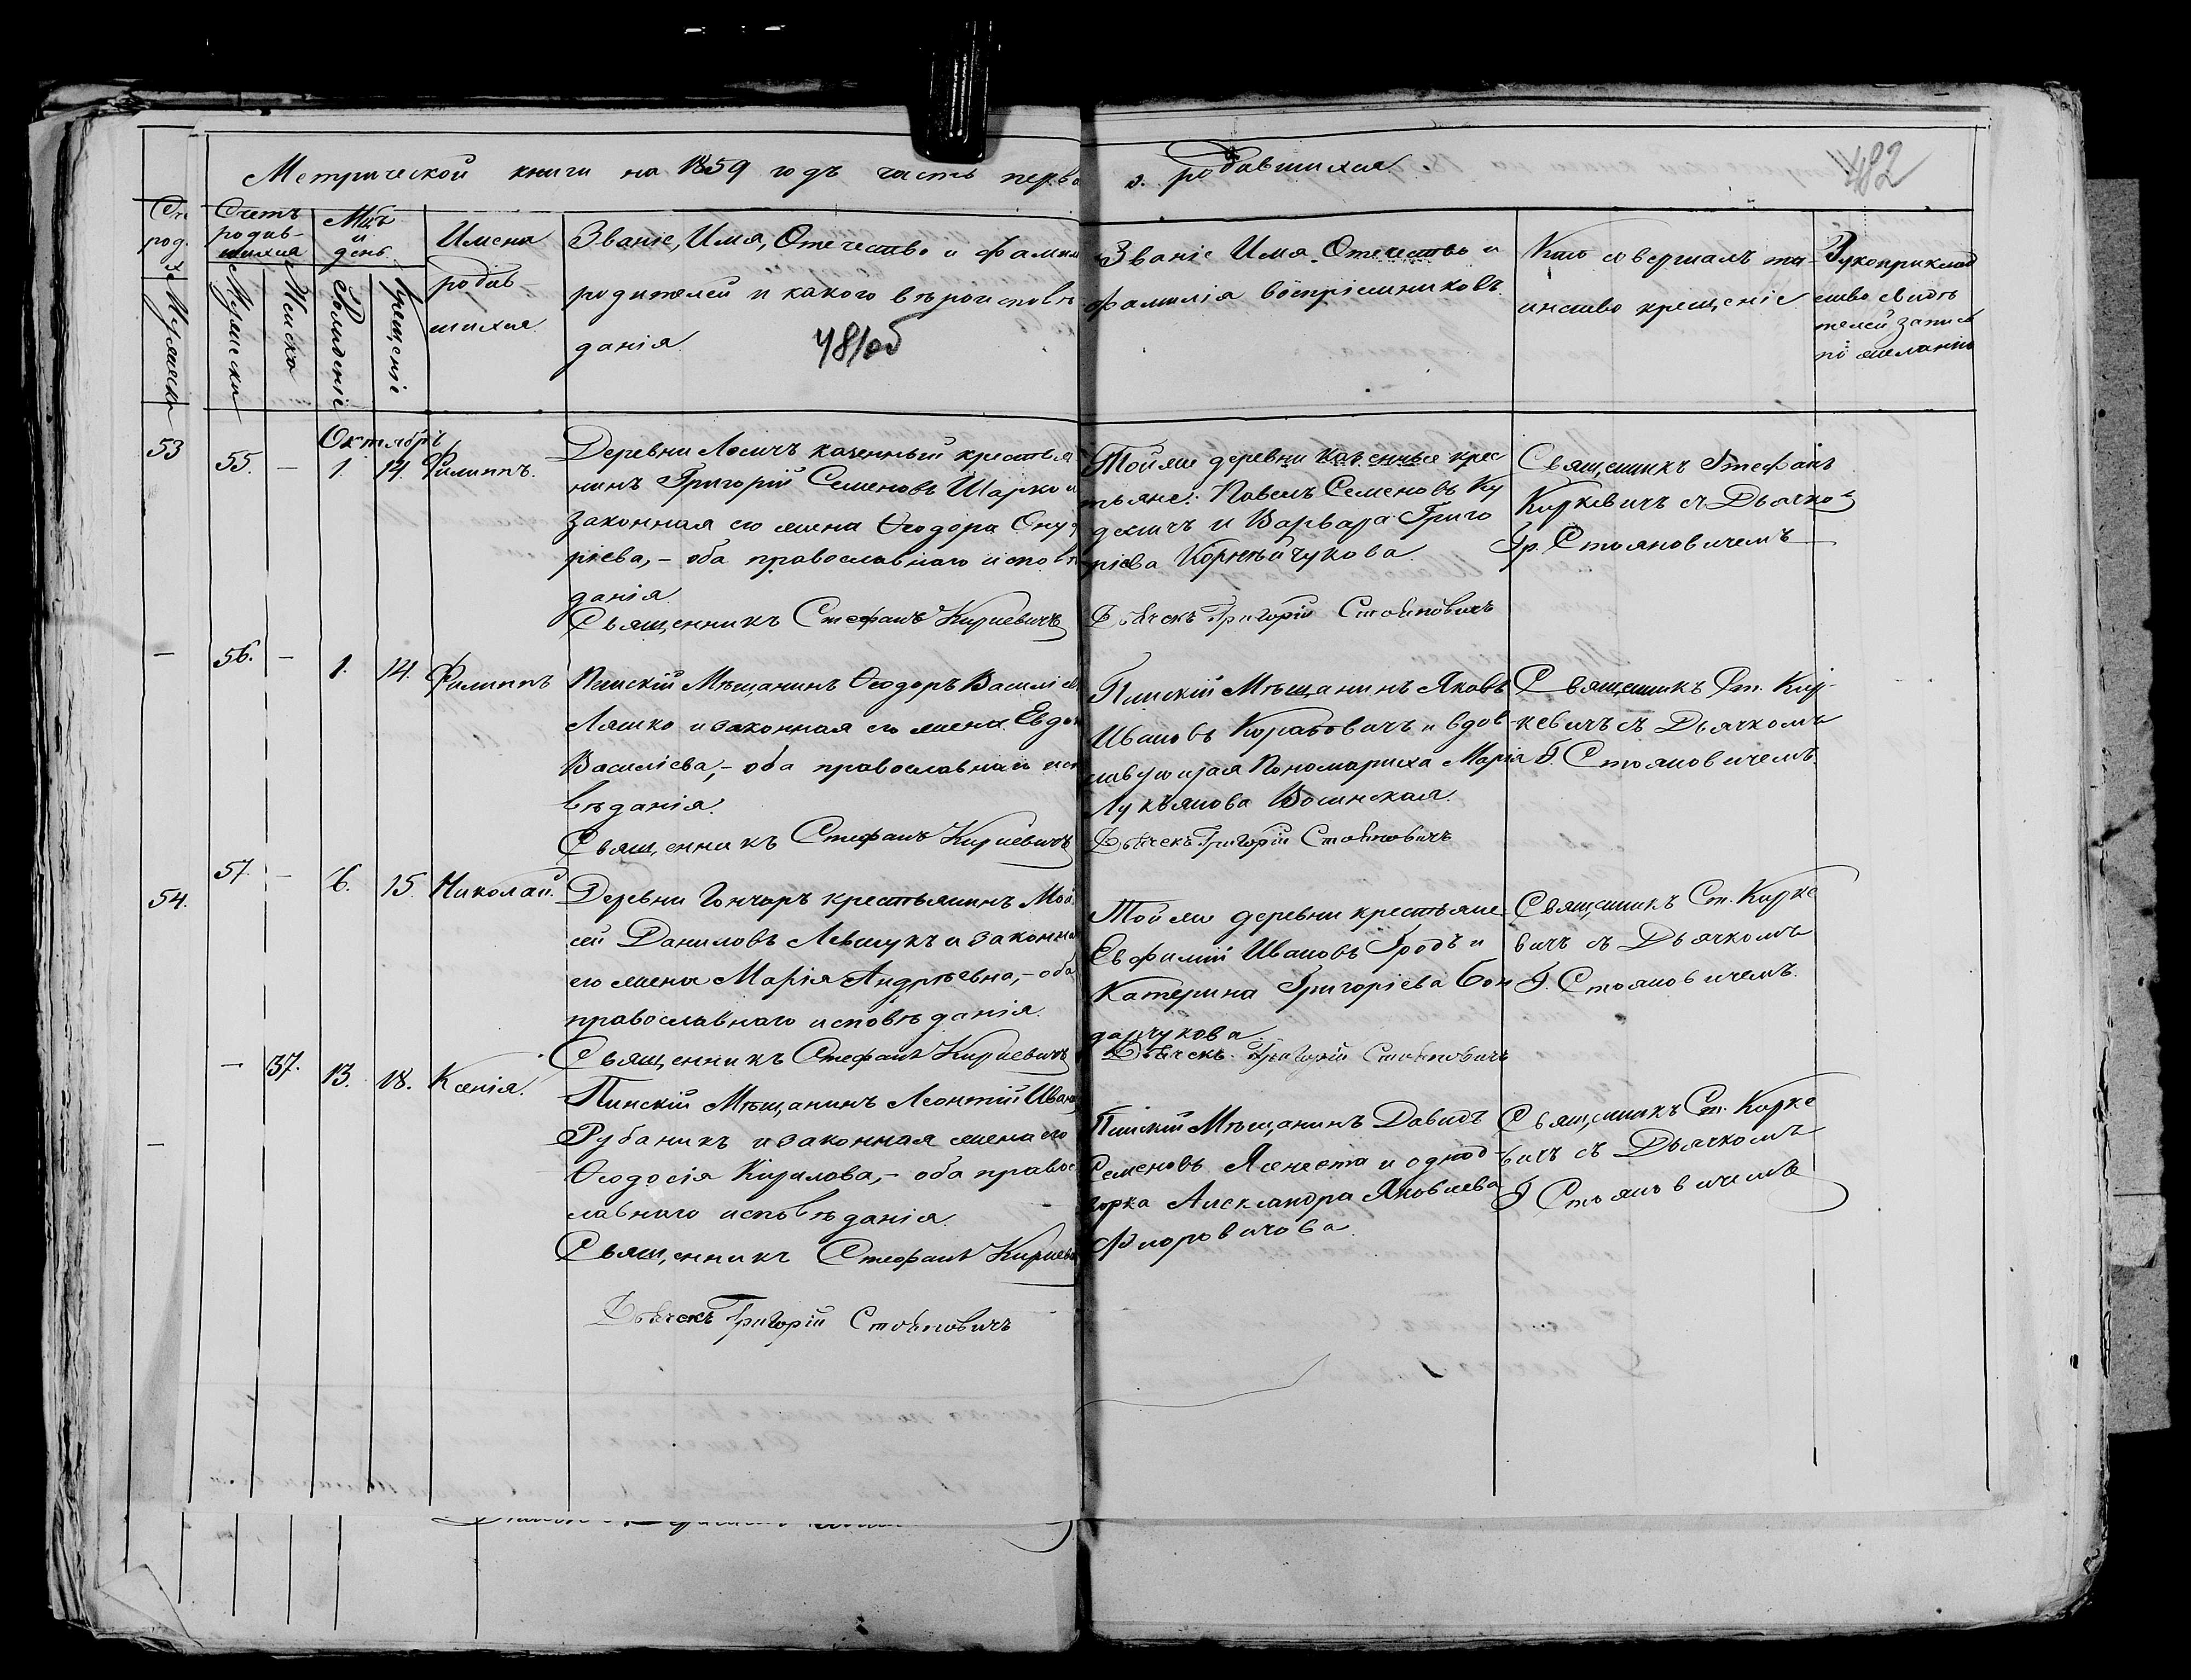 Метрической книги на 1859 годъ часть перва
о родившихся.
482
Счетъ родив-
шихся
Мужеска
Женска
Мѣц. и день
Рожденіе
Крещеніе
Имена
родив-
шихся.
Званіе, Имя, Отечество и фамил
родителей и какого вѣроисповѣ
данія.
481об
Званіе Имя Отечество и
фамилія воспріемниковъ.
Кто совершалъ та-
инство крещеніе
Рукоприклад
ство свидѣ
телей записи
по желанію
53
Октябрь
55. — 1. 14. Филиппъ.
Деревни казенный крестья
нинъ Григорій Семеновъ Шарко и
законная его жена Ѳеодора Онуф
ріева, – оба православнаго исповѣ
данія.
Священникъ Стефанъ Киркевичъ
Той же деревни казенные крес
тьяне: Павелъ Семеновъ Ку
и Варвара Григо
ріева Корнѣйчукова
Дьячекъ Григорій Стояновичъ
Священикъ Стефанъ
Киркевичъ съ Дьячко-
Гр. Стояновичемъ
— 56. — 1. 14. Филиппъ
Пинскій Мѣщанинъ Ѳеодоръ Василіев
Ляшко и законная его жена Евдок
Василіева, – оба православнаго исп
вѣданія.
Священникъ Стефанъ Киркевичъ
Пинскій Мѣщанинъ Яковъ
Ивановъ и вдов-
ствующая Пономариха Марія
Лукьянова
Дьячекъ Григорій Стояновичъ
Священикъ Ст. Кир-
кевичъ съ Дьячкомъ
Г. Стояновичемъ.
54.
57. — 6. 15. Николай.
Деревни Гончаръ крестьянинъ Мои
сей Даниловъ Левчукъ и законная
его жена Марія Андрѣевна, – оба
православнаго исповѣданія.
Священникъ Стефанъ Киркевичъ
Той же деревни крестьяне
Евфимій Ивановъ Гродъ и
Катерина Григоріева Бон
дарчукова
Дьячекъ Григорій Стояновичъ
Священикъ Ст. Кирке
вичъ съ Дьячкомъ
Г. Стояновичемъ.
— 37. 13. 18. Ксенія.
Пинскій Мѣщанинъ Леонтій Иванов
Рубаникъ и законная жена его
Ѳеодосія Кирилова, – оба правос
лавнаго исповѣданія.
Священникъ Стефанъ Киркеви
Дьячекъ Григорій Стояновичъ
Пинскій Мѣщанинъ Давидъ
Семеновъ и однод-
ворка Александра Яковлева
Флоровичова
Священикъ Ст. Кирке
вичъ съ Дьячкомъ
Г Стояновичемъ